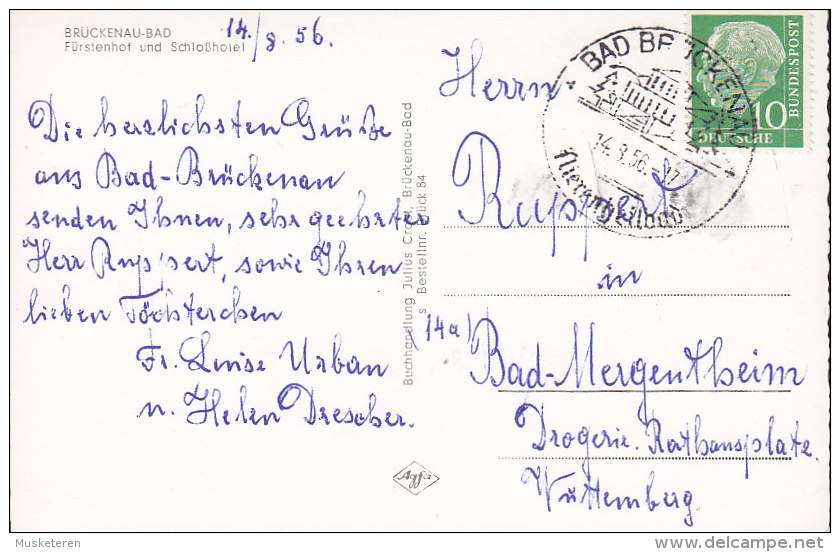 BRÜCKENAU-BAD
Fürstenhof und Schloßhotel
14./8.56.
Die herzlichsten Grüße
aus Bad-Brückenau
senden Ihnen, sehr geehrter
Herr Ruppert, sowie Ihren
lieben Töchterchen
Fr. Luise Urban
u. Helen Drescher.
Buchhandlung Julius Brückenau-Bad
Bestellnr. Brück 84
Agfa
BAD BRÜCKENAU
14.8.56.-17
BUNDESPOST
10
DEUTSCHE
Herrn
Ruppert
in
14a)
Bad-Mergentheim
Drogerie. Rathausplatz.
Württemberg.
Musketeren
www.delcampe.net